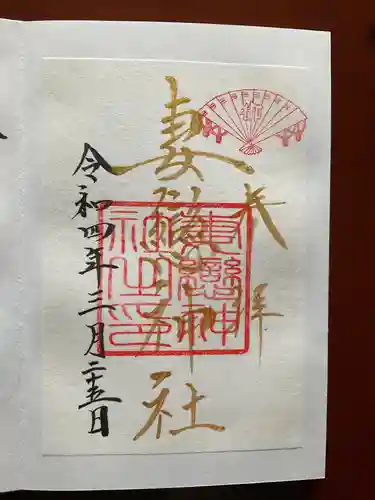 奉拝
妻戀神社
令和四年三月二十五日
妻戀神
社之印